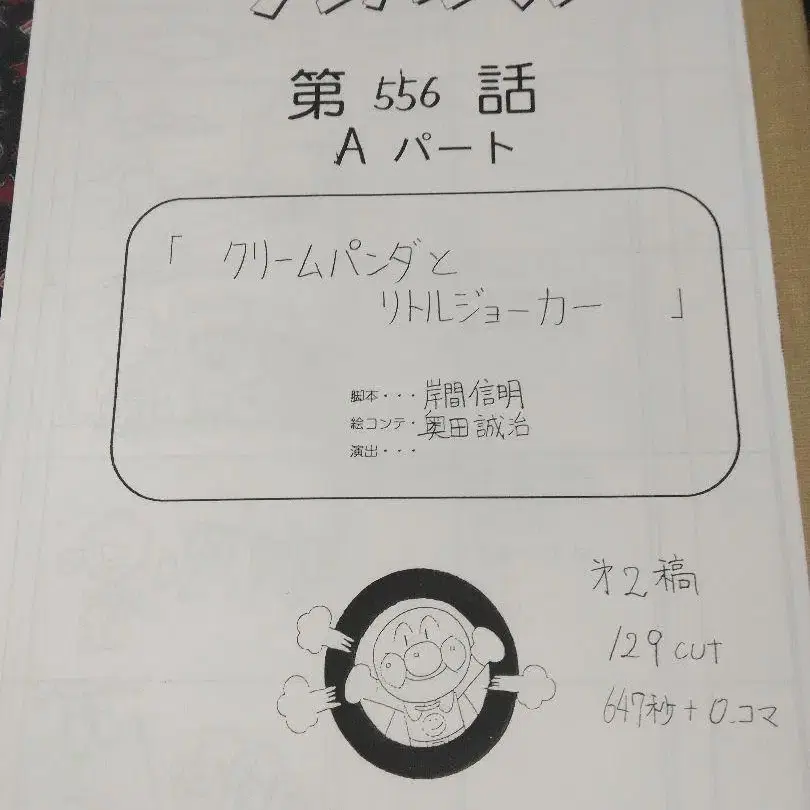 第 556 話
A パート
「 クリームパンダと
リトルジョーカー 」
脚本・・・岸間信明
絵コンテ・奥田誠治
演出・・・
才2稿
129 cut
647秒+0.コマ